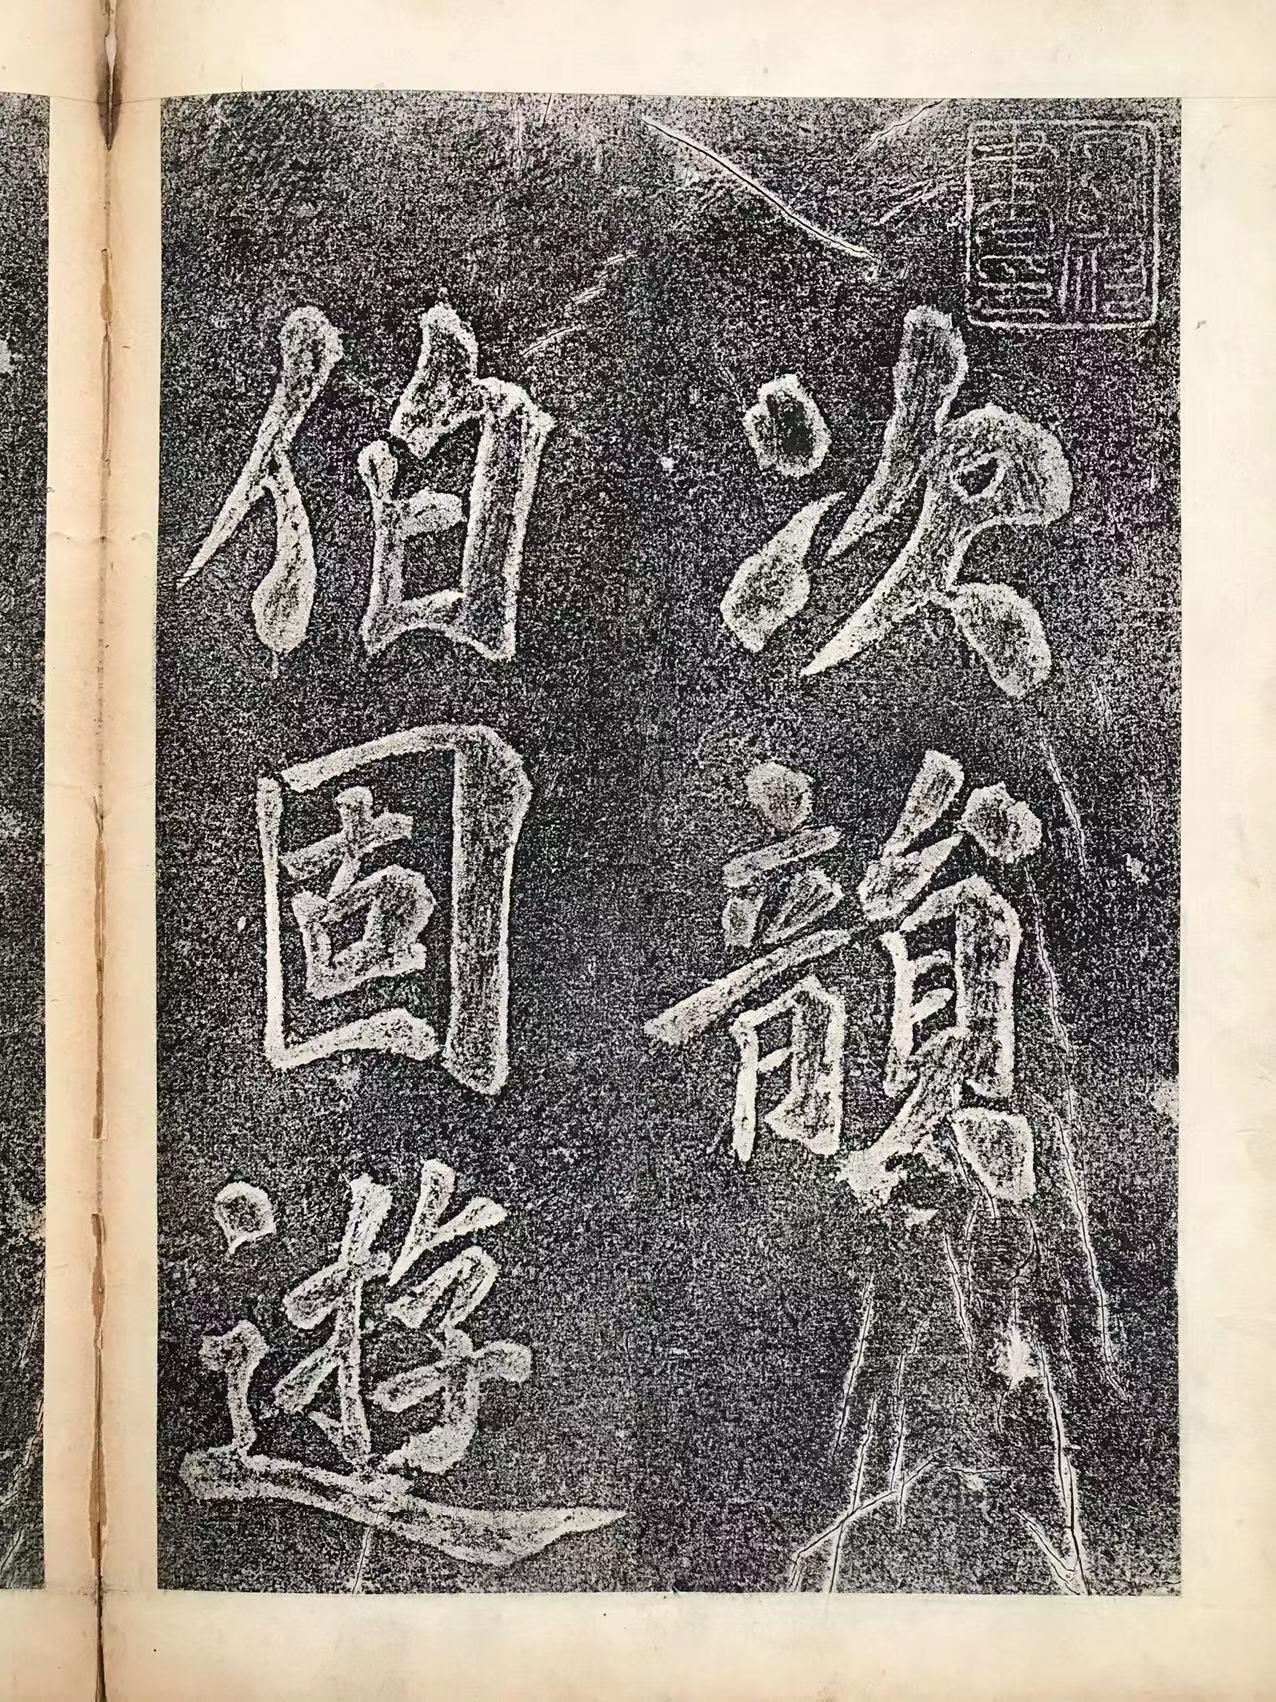 次韻
伯固遊